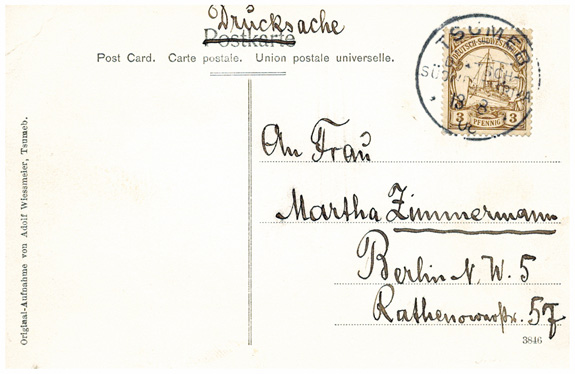 Drucksache
Postkarte
Post Card. Carte postale. Union postale universelle.
TSUMEB
DEUTSCH-SÜDWEST
3 PFENNIG 3
An Frau
Martha Zimmermann
Berlin N. W. 5
Rathenowerstr. 57
3846
Original-Aufnahme von Adolf Wiessmeier, Tsumeb.